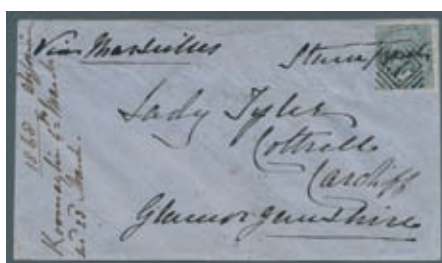 Via Marseilles
Stamp paid
Lady Tyler
Cottrells
Cardiff
Glamorganshire
1868